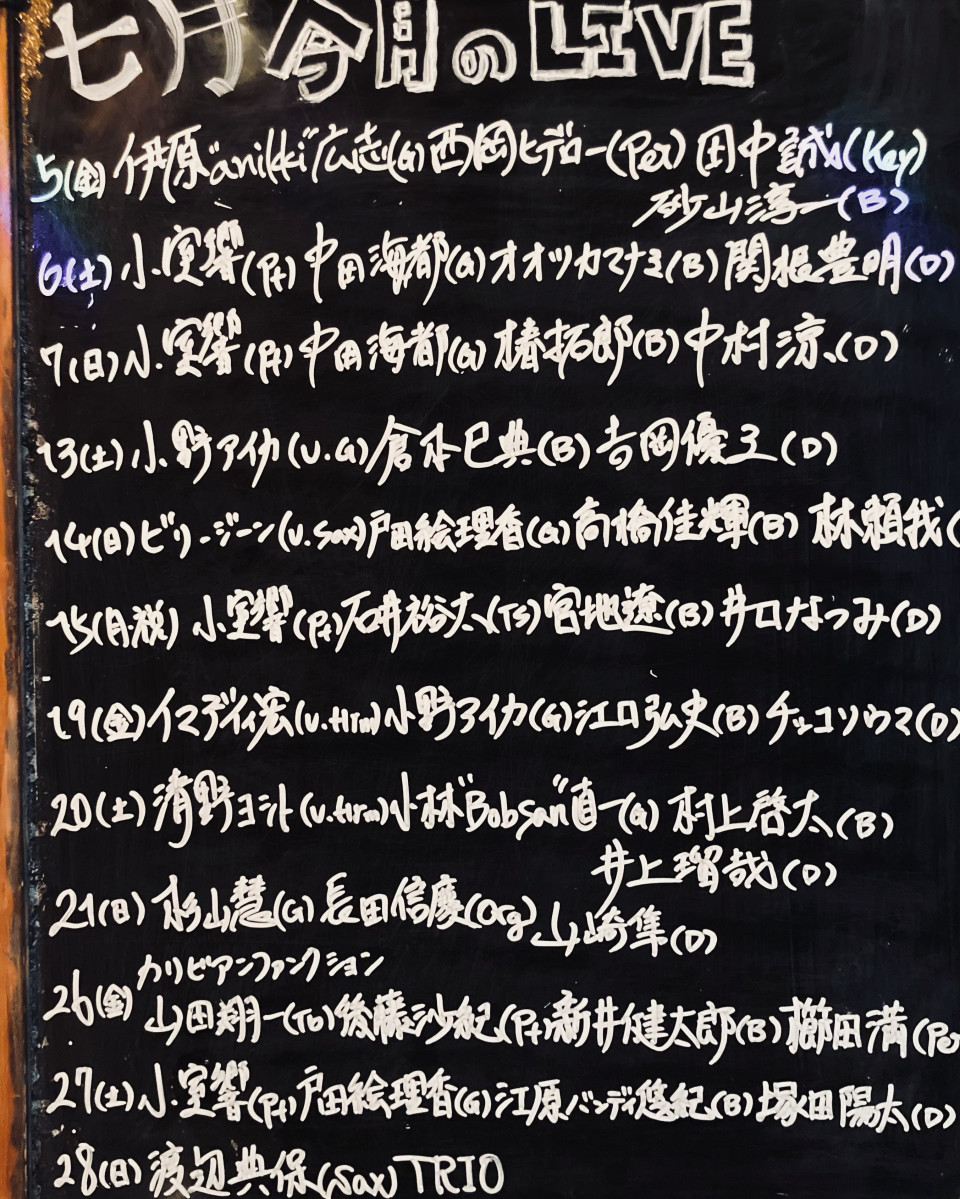 七月 今月の LIVE
5(金) 伊原"anikki"広志(G) 西岡ヒデロー(Per) 田中誠(Key)
砂山淳一(B)
6(土) 小室響(Pf) 中田海都(G) オオツカマナミ(B) 関根豊明(D)
7(日) 小室響(Pf) 中田海都(G) 椿拓郎(B) 中村涼(D)
13(土) 小野アイカ(V.G) 倉本巳典(B) 吉岡優三(D)
14(日) ビリージーン(V.Sax) 戸田絵理香(G) 高橋佳輝(B) 林頼我(
15(月祝) 小室響(Pf) 石井裕太(TS) 宮地遼(B) 井口なつみ(D)
19(金) イマディ宏(V.Hrm) 小野アイカ(G) 江口弘史(B) チッコソウマ(D)
20(土) 清野ヨシト(V.Hrm) 小林"Bobsan"直一(G) 村上啓太(B)
井上瑠哉(D)
21(日) 杉山慧(G) 長田信慶(Org) 山崎隼(D)
カリビアンファンクション
26(金) 山田翔一(Tb) 後藤沙紀(Pf) 新井健太郎(B) 櫛田満(Pe
27(土) 小室響(Pf) 戸田絵理香(G) 江原バンディ悠紀(B) 塚田陽太(D)
28(日) 渡辺典保(Sax) TRIO